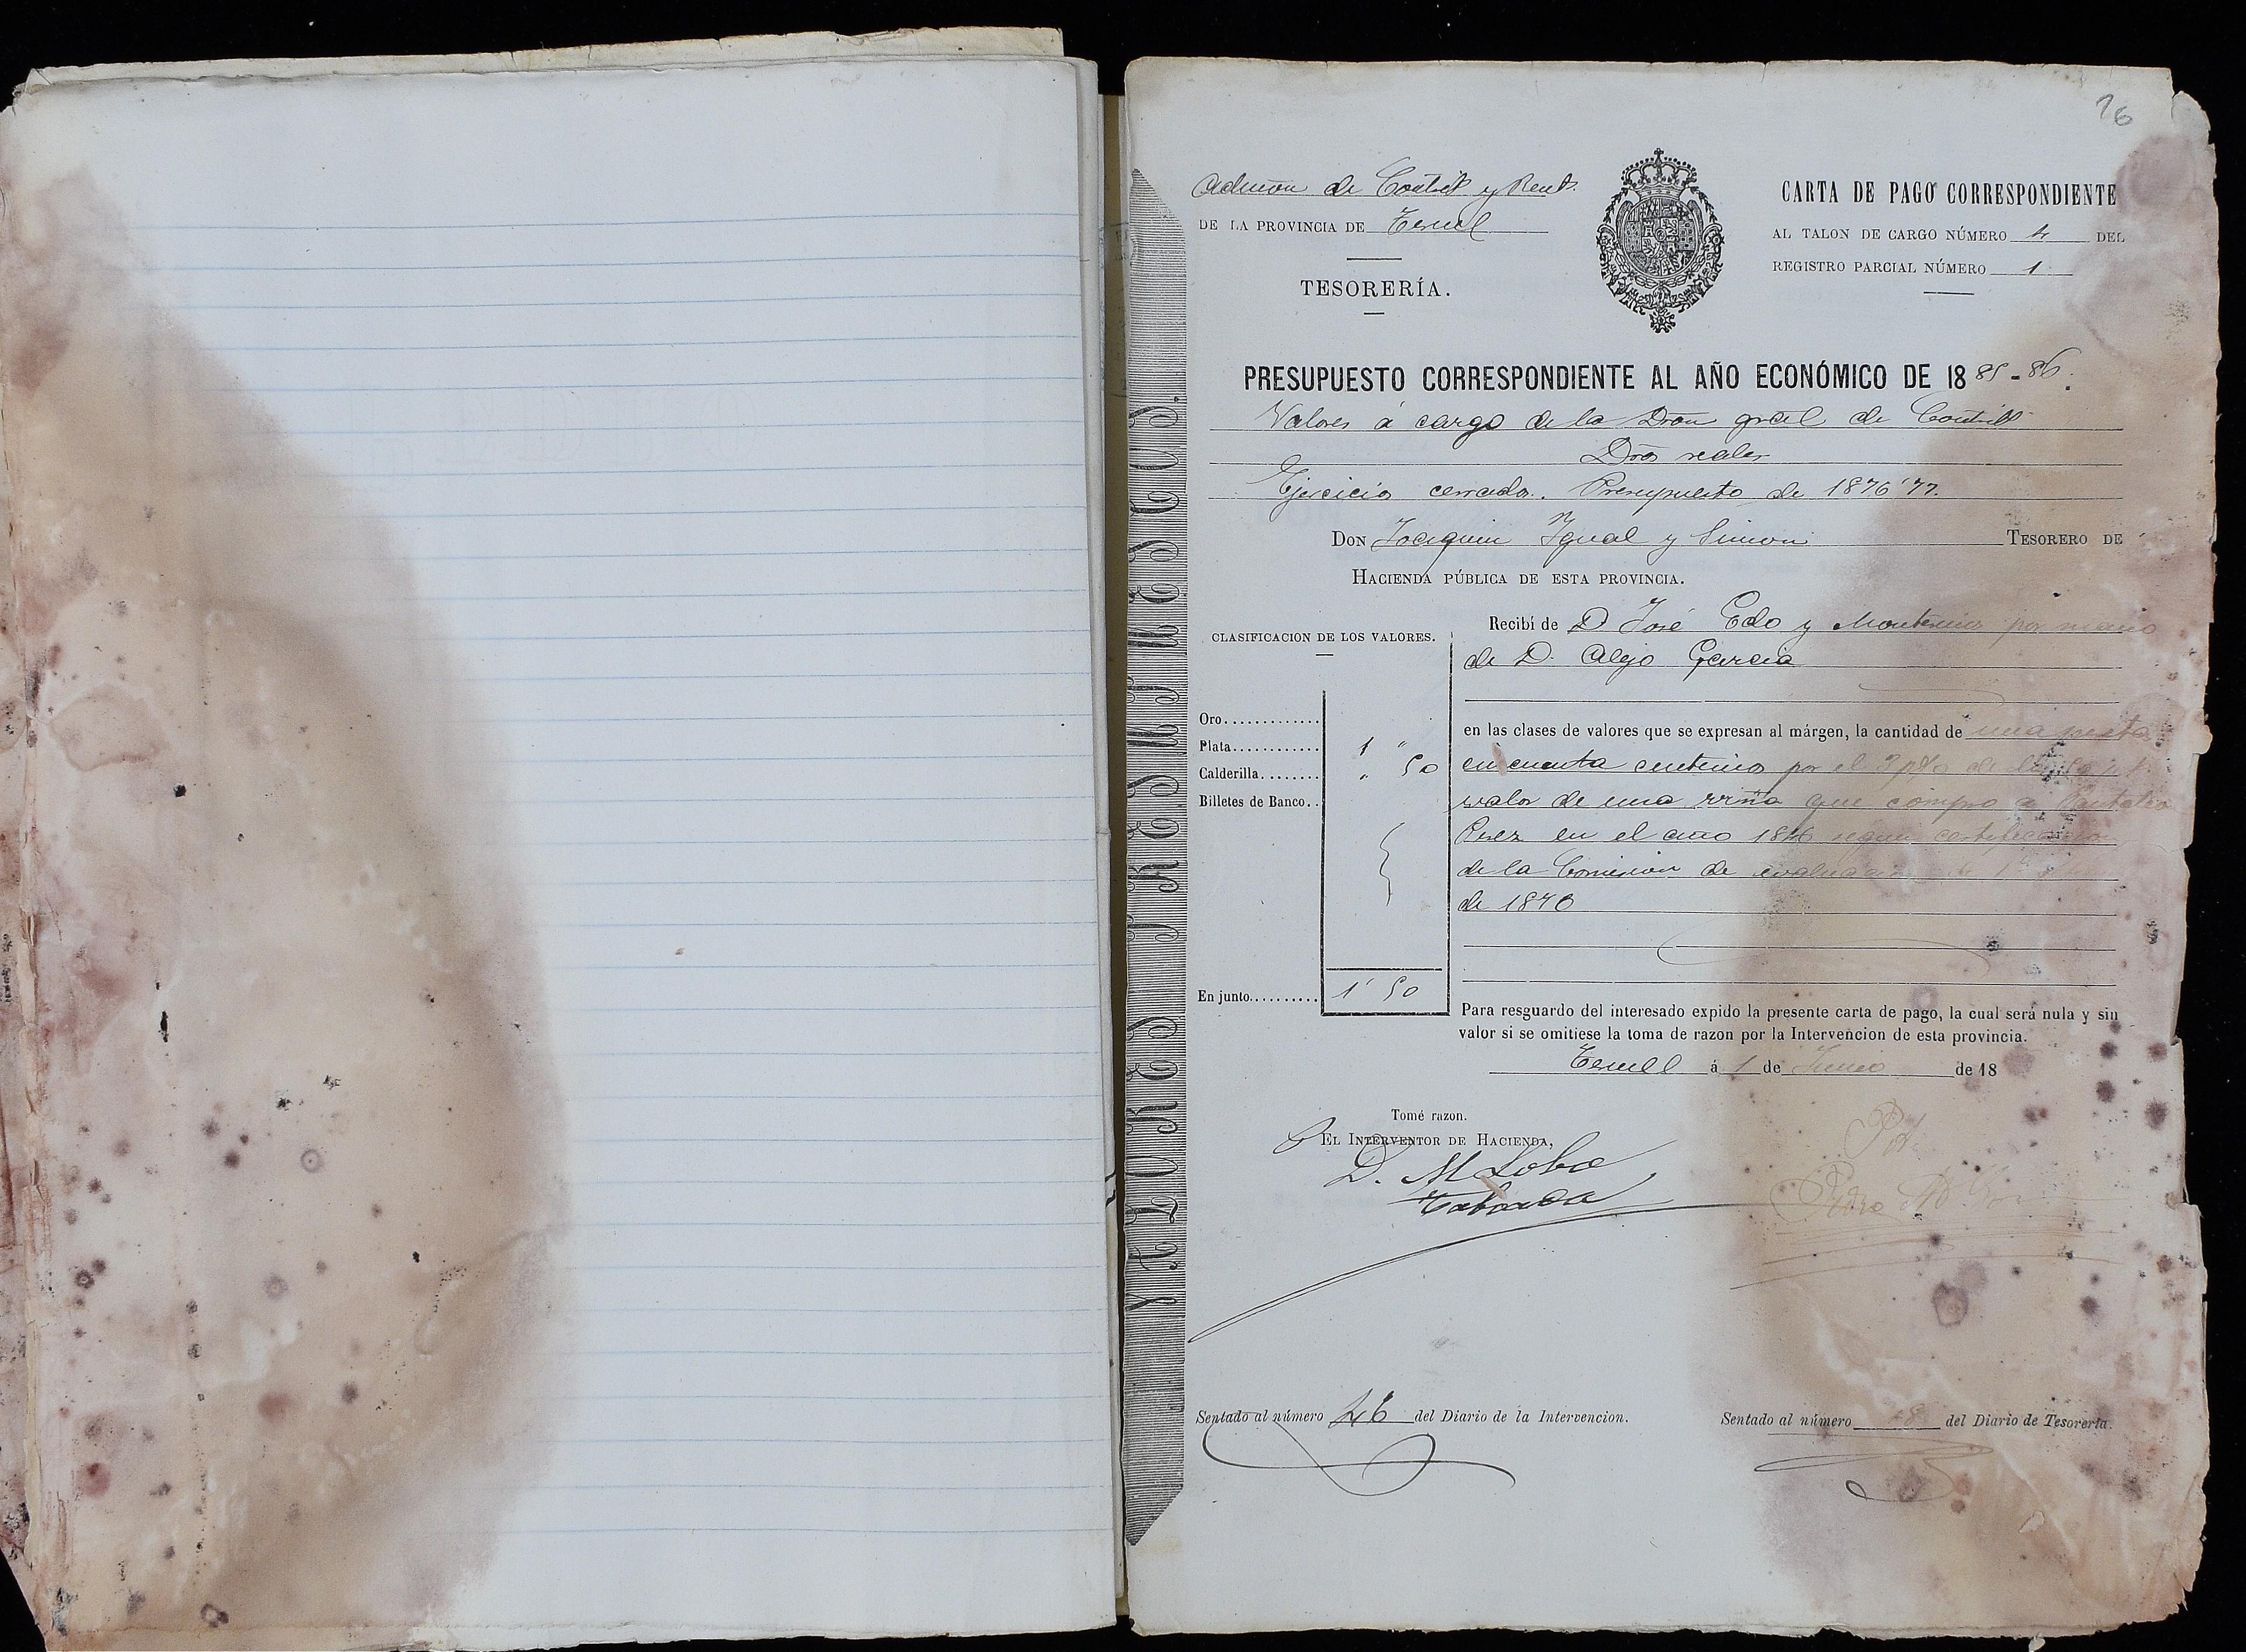 16
Admon de Contrib y Rent.
DE LA PROVINCIA DE Teruel
TESORERÍA.
CARTA DE PAGO CORRESPONDIENTE
AL TALON DE CARGO NÚMERO 4 DEL
REGISTRO PARCIAL NÚMERO 1
PRESUPUESTO CORRESPONDIENTE AL AÑO ECONÓMICO DE 1885-86.
Valores á cargo de la Dron gral de Contrib
Dros reales
Ejercicio cerrado. Presupuesto de 1876'77.
DON Joaquin Igual y Simon TESORERO DE
HACIENDA PÚBLICA DE ESTA PROVINCIA.
CLASIFICACION DE LOS VALORES.
Oro
Plata 1 "
Calderilla " 50
Billetes de Banco
En junto 1'50
Recibí de D José Edo y por mano
de D. Alejo Garcia
en las clases de valores que se expresan al márgen, la cantidad de una peseta
cincuenta centimos por el 3 p% de
valor de una que compro a
Perez en el año según certificacion
de la Comision de
de 1876
Para resguardo del interesado expido la presente carta de pago, la cual será nula y sin
valor si se omitiese la toma de razon por la Intervencion de esta provincia.
Teruel á 1 de Junio de 18
Tomé razon.
EL INTERVENTOR DE HACIENDA,
D. M Lobo
Taboada
Pedro
Sentado al número 46 del Diario de la Intervencion.
Sentado al número 48 del Diario de Tesorería.